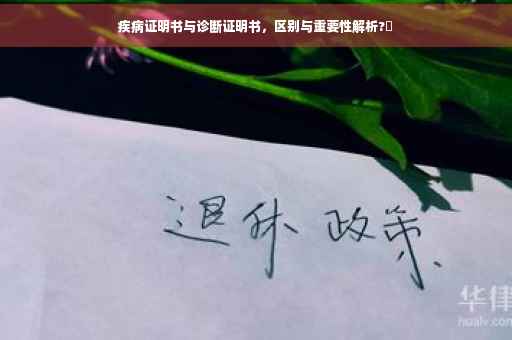 疾病证明书与诊断证明书，区别与重要性解析?
退休 政策
华律
hualv.com